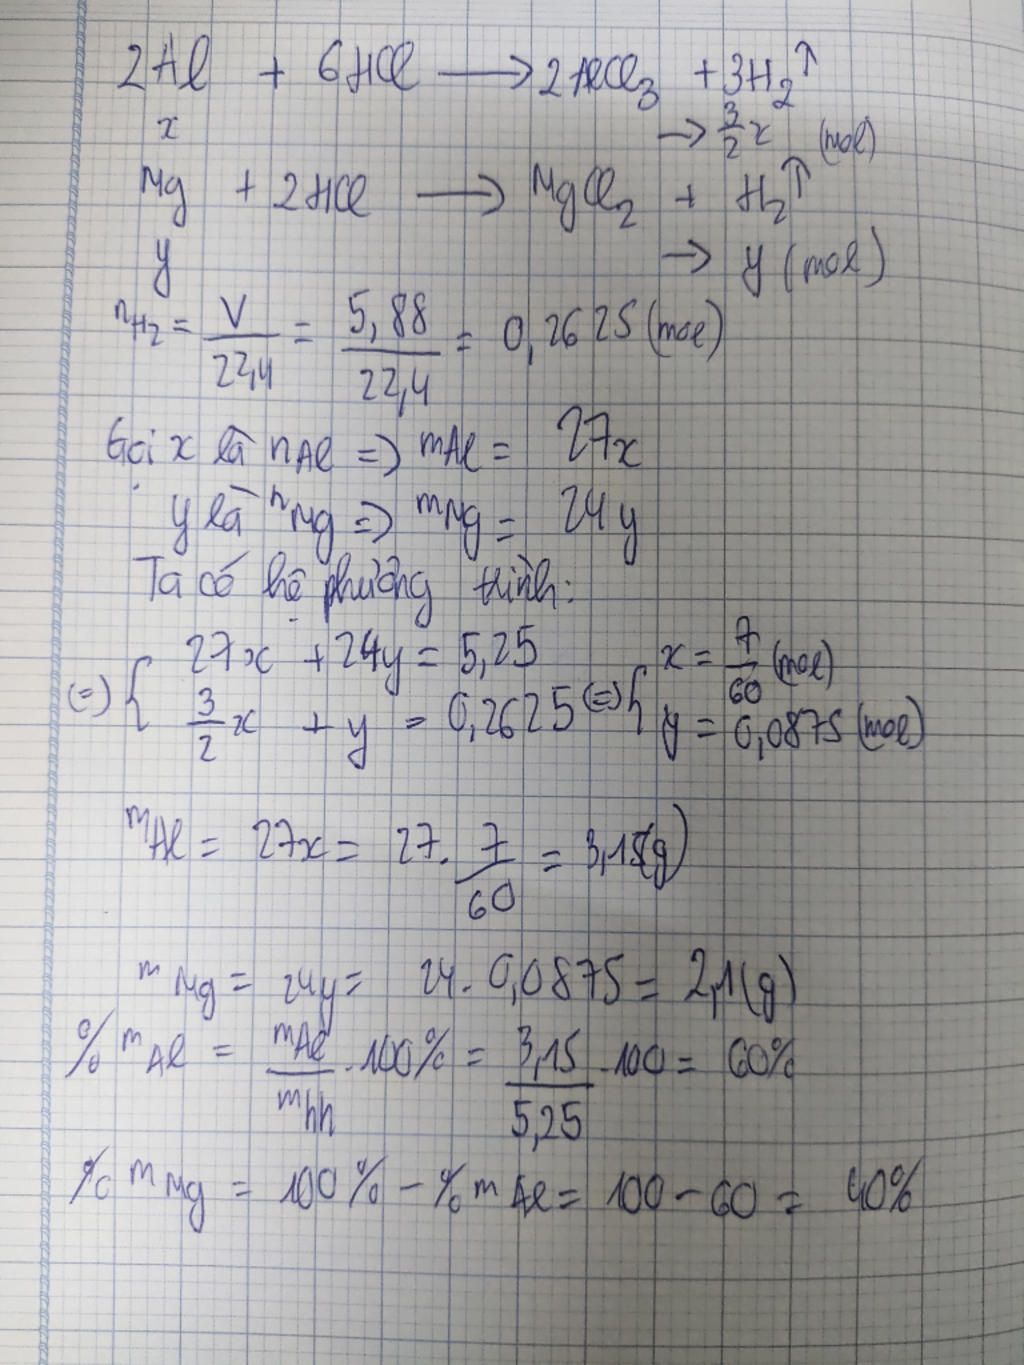 2Al + 6HCl → 2AlCl₃ + 3H₂↑
x → 3/2 x (mol)
Mg + 2HCl → MgCl₂ + H₂↑
y → y (mol)
nH₂ = V/22,4 = 5,88/22,4 = 0,2625 (mol)
Gọi x là nAl => mAl = 27x
y là nMg => mMg = 24y
Ta có hệ phương trình:
(=) { 27x + 24y = 5,25 (=) { x = 7/60 (mol)
3/2 x + y = 0,2625 y = 0,0875 (mol)
mAl = 27x = 27. 7/60 = 3,15(g)
mMg = 24y = 24. 0,0875 = 2,1(g)
% mAl = mAl/mhh .100% = 3,15/5,25 .100 = 60%
% mMg = 100% - % mAl = 100 - 60 = 40%